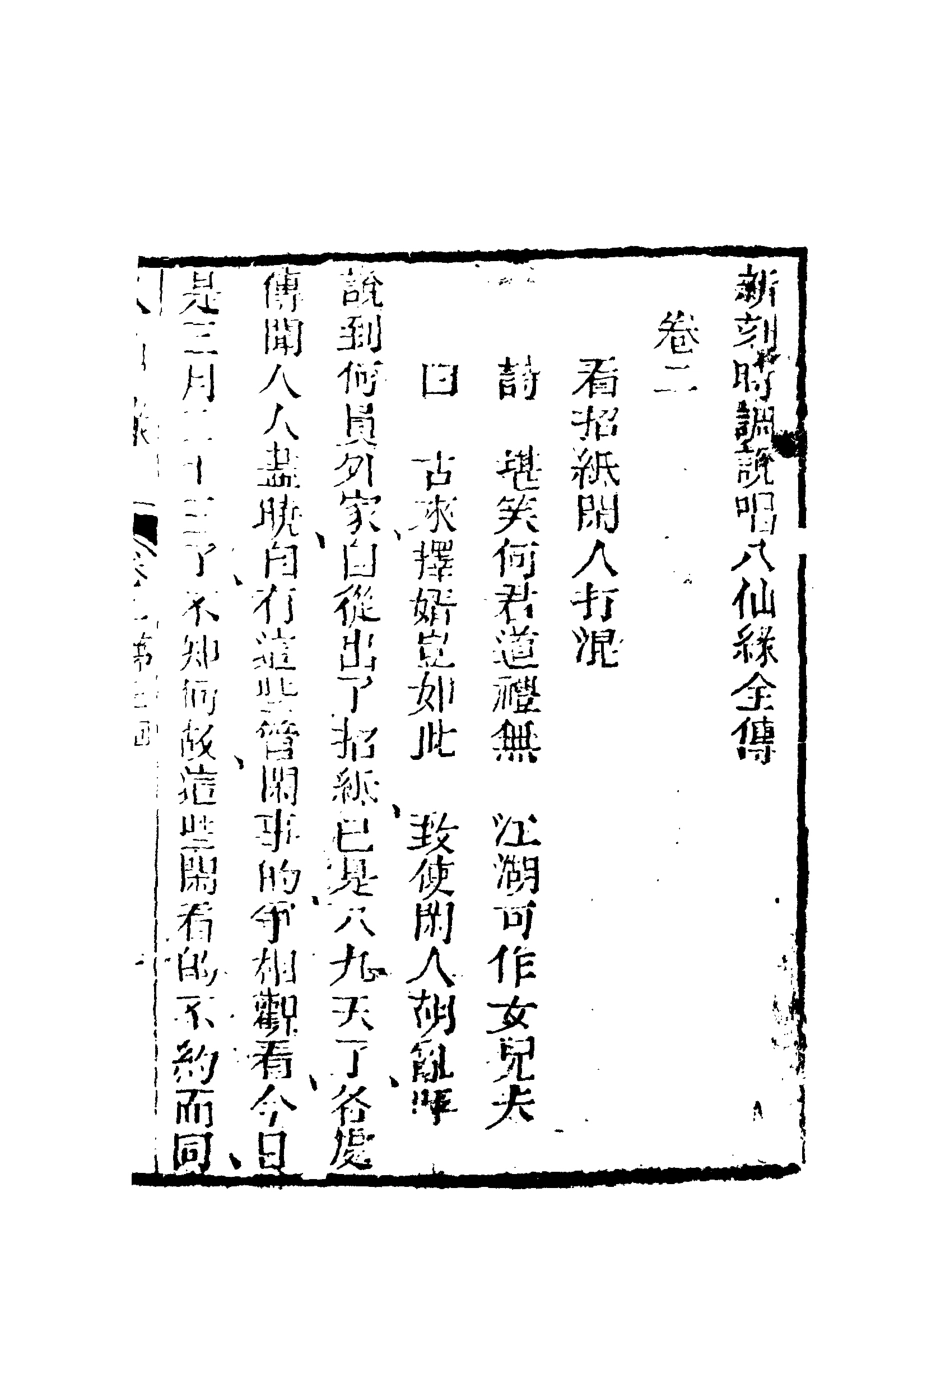 新刻時調說唱八仙緣全傳
卷二
看招紙閑人打混
詩　堪笑何君道禮無　江湖可作女兒夫
曰　古來擇婿豈如此　致使閑人胡亂呼
說到何員外家自從出了招紙已是八九天了各處
傳聞人人盡曉自有這些管閑事的爭相觀看今日
是三月二十三了不知何故這些閑看的不約而同